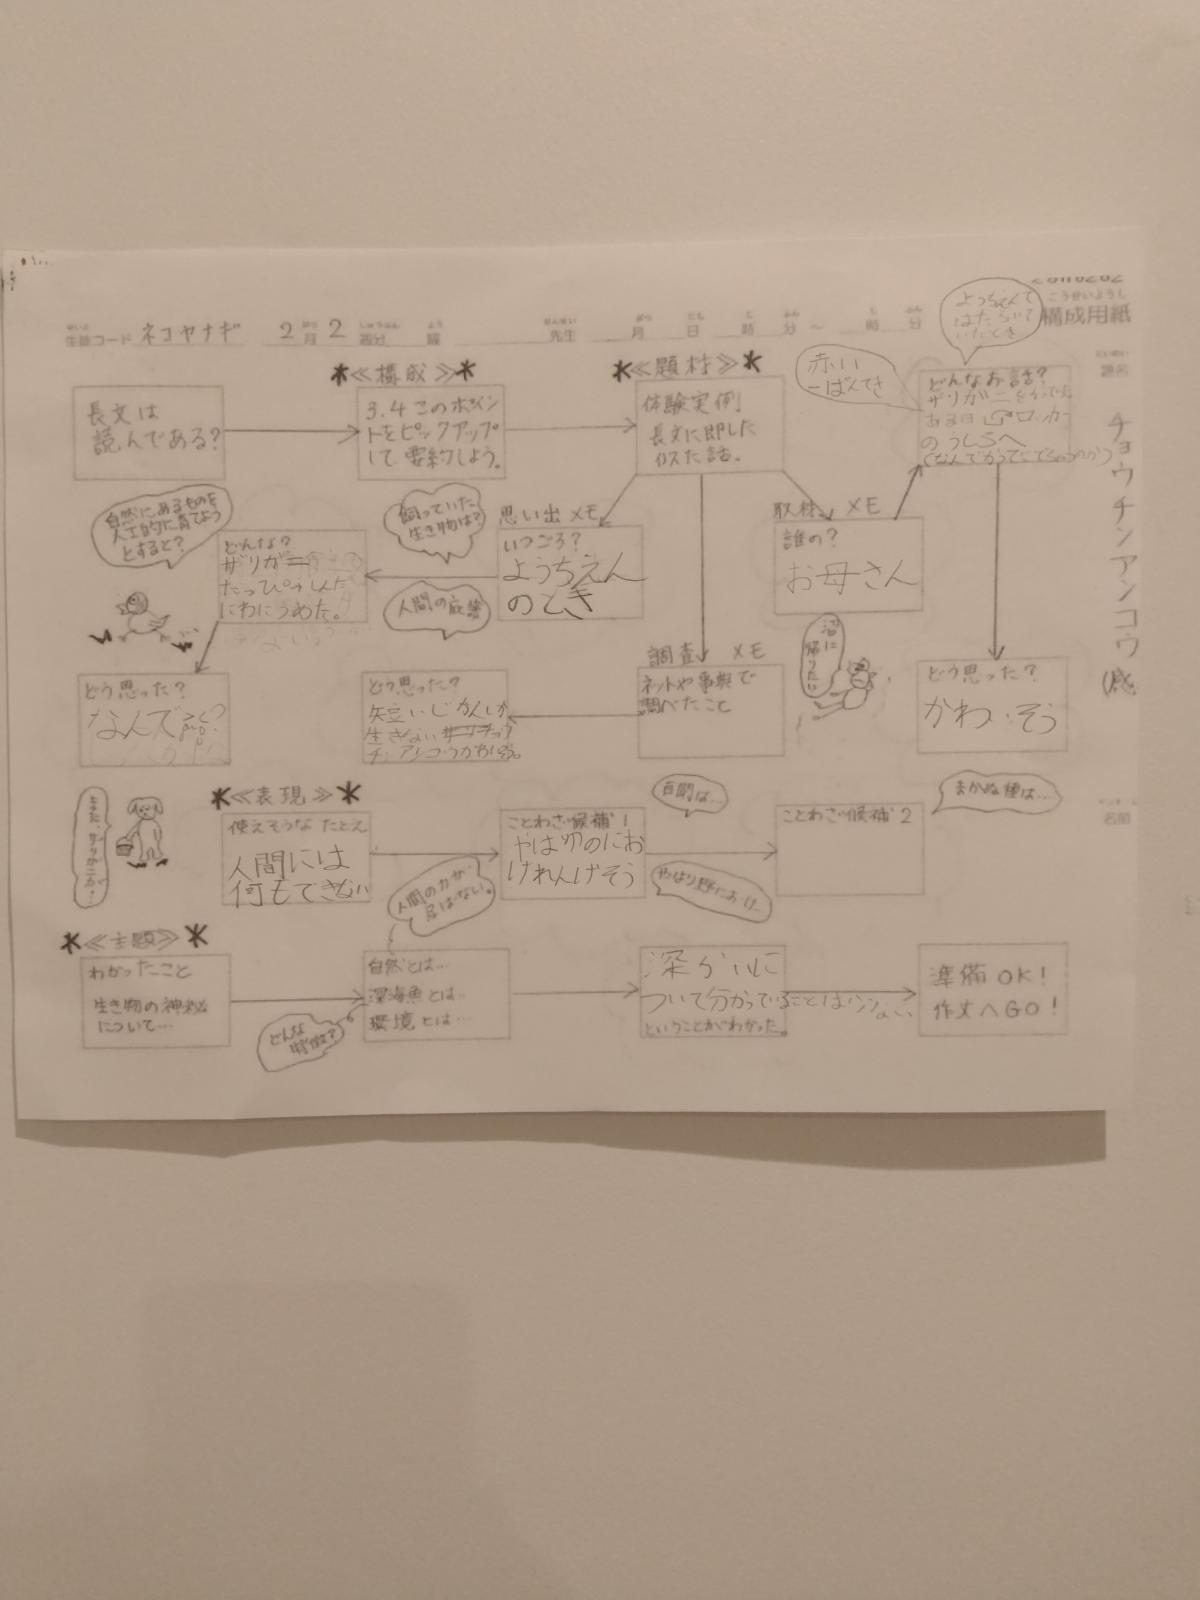 構成用紙
生徒コード ネコヤナギ 2月2週分 曜 先生 月 日 時 分 ~ 時 分
課名
チョウチンアンコウ(感
名前
長文は
読んである?
＊≪構成≫＊
3.4このポイン
トをピックアップ
して、要約しよう。
＊≪題材≫＊
体験実例
長文に即した
似た話。
思い出メモ
いつごろ?
ようちえん
のとき
飼っていた
生き物は?
どんな?
ザリガニ
にわにうめた。
自然にあるものを
人工的に育てよう
とすると?
どう思った?
なんで
取材 メモ
誰の?
お母さん
どんなお話?
ザリガニを
ある日 ロッカー
のうしろへ
ようちえんで
はたらいて
いたとき
赤い
一ぱんてき
どう思った?
かわいそう
沼に
帰りたい
調査 メモ
ネットや事典で
調べたこと
どう思った?
短いじかんしか
生きない
＊≪表現≫＊
使えそうな たとえ
人間には
何もできない
人間の力が
及ばない。
ことわざ候補1
やはりのにお
けれんげそう
百聞は…
やはり野におけ…
ことわざ候補2
まかぬ種は…
また、ザリガニが!
＊≪主題≫＊
わかったこと
生き物の神秘
について…
どんな
特徴?
自然とは…
深海魚とは…
環境とは…
深かいに
ついて分かっていることは少ない
ということがわかった。
準備OK!
作文へGO!